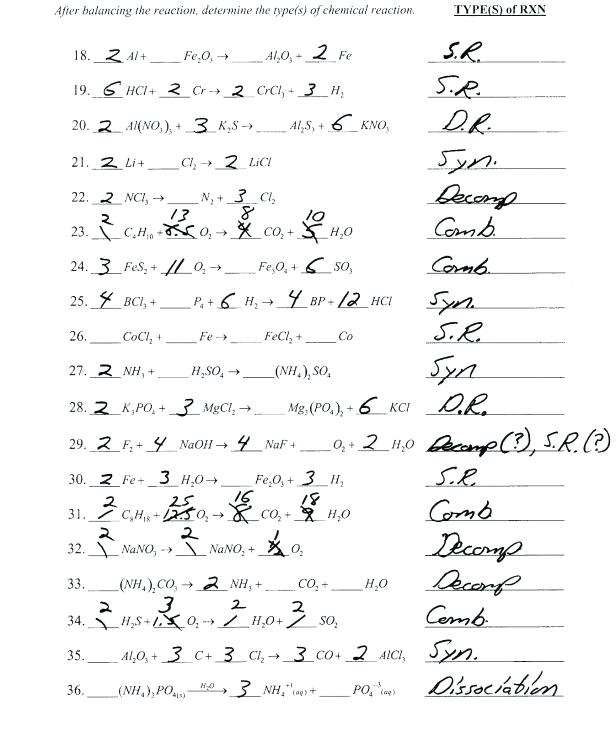 After balancing the reaction, determine the type(s) of chemical reaction. TYPE(S) of RXN
18. 2 Al + ___ Fe₂O₃ → ___ Al₂O₃ + 2 Fe S.R.
19. 6 HCl + 2 Cr → 2 CrCl₃ + 3 H₂ S.R.
20. 2 Al(NO₃)₃ + 3 K₂S → ___ Al₂S₃ + 6 KNO₃ D.R.
21. 2 Li + ___ Cl₂ → 2 LiCl Syn.
22. 2 NCl₃ → ___ N₂ + 3 Cl₂ Decomp
2 13 8 10
23. \ C₄H₁₀ + 6.5 O₂ → 4 CO₂ + 5 H₂O Comb.
24. 3 FeS₂ + 11 O₂ → ___ Fe₃O₄ + 6 SO₃ Comb.
25. 4 BCl₃ + ___ P₄ + 6 H₂ → 4 BP + 12 HCl Syn.
26. ___ CoCl₂ + ___ Fe → ___ FeCl₂ + ___ Co S.R.
27. 2 NH₃ + ___ H₂SO₄ → ___ (NH₄)₂SO₄ Syn
28. 2 K₃PO₄ + 3 MgCl₂ → ___ Mg₃(PO₄)₂ + 6 KCl D.R.
29. 2 F₂ + 4 NaOH → 4 NaF + ___ O₂ + 2 H₂O Decomp(?), S.R.(?)
30. 2 Fe + 3 H₂O → ___ Fe₂O₃ + 3 H₂ S.R.
2 25 16 18
31. / C₈H₁₈ + 12.5 O₂ → 8 CO₂ + 9 H₂O Comb
2 2 1
32. \ NaNO₃ → \ NaNO₂ + ½ O₂ Decomp
33. ___ (NH₄)₂CO₃ → 2 NH₃ + ___ CO₂ + ___ H₂O Decomp
2 3 2 2
34. \ H₂S + 1.5 O₂ → / H₂O + / SO₂ Comb.
35. ___ Al₂O₃ + 3 C + 3 Cl₂ → 3 CO + 2 AlCl₃ Syn.
36. ___ (NH₄)₃PO₄₍ₛ₎ —H₂O→ 3 NH₄⁺¹ (aq) + ___ PO₄⁻³ (aq) Dissociation